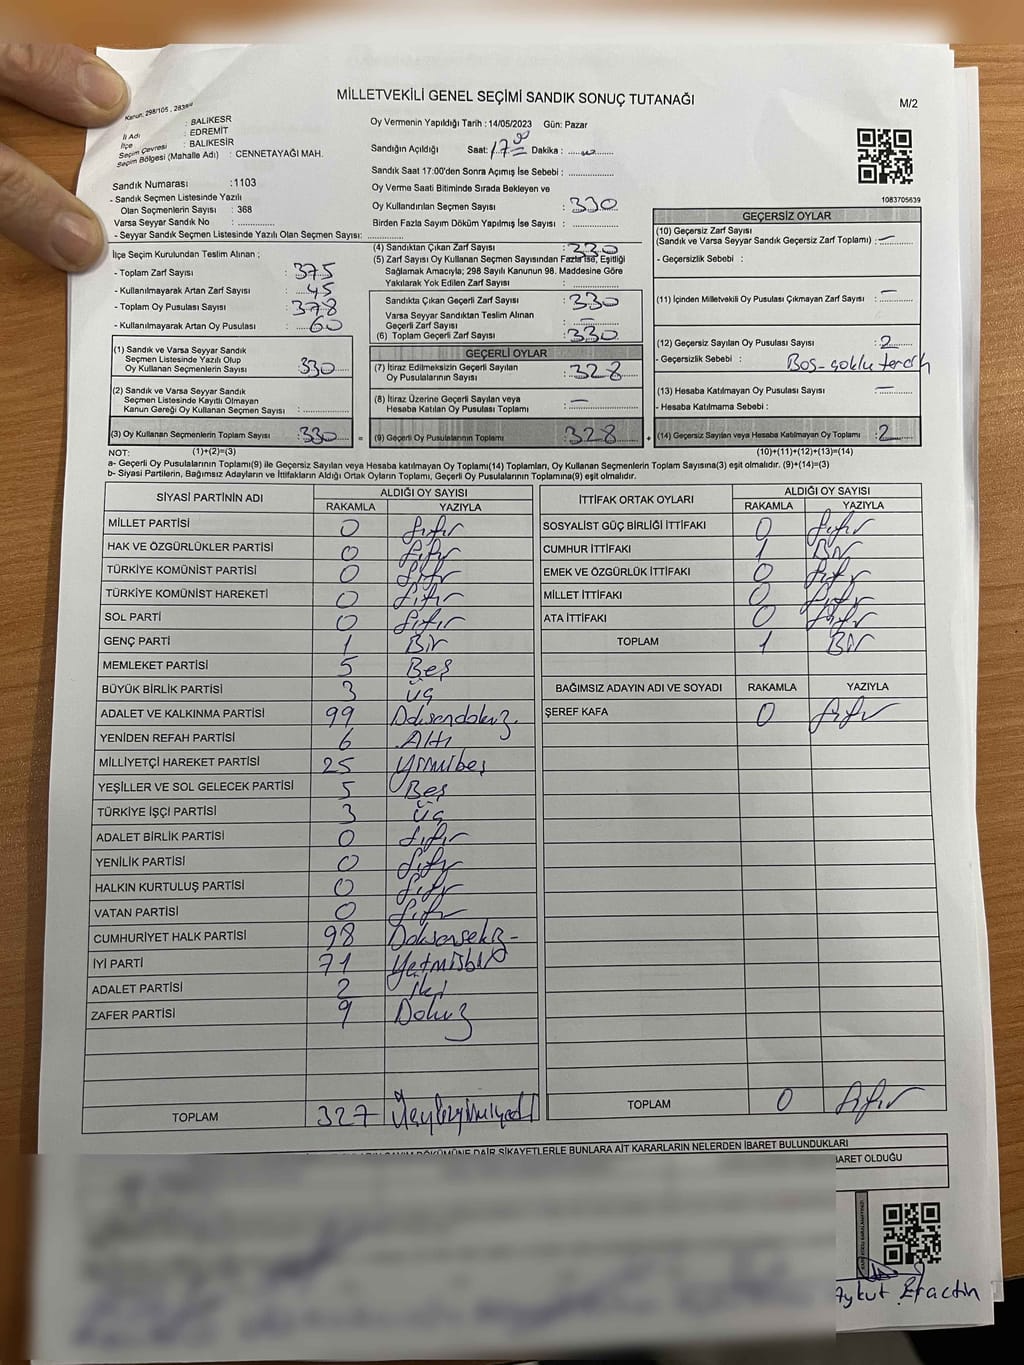 MİLLETVEKİLİ GENEL SEÇİMİ SANDIK SONUÇ TUTANAĞI
M/2
Kanun: 298/105
İl Adı : BALIKESR
İlçe : EDREMİT
Seçim Çevresi : BALIKESİR
Seçim Bölgesi (Mahalle Adı) : CENNETAYAĞI MAH.
Oy Vermenin Yapıldığı Tarih : 14/05/2023 Gün: Pazar
Sandığın Açıldığı Saat: 17 00 Dakika :
Sandık Saat 17:00'den Sonra Açımış İse Sebebi :
Oy Verme Saati Bitiminde Sırada Bekleyen ve
Oy Kullandırılan Seçmen Sayısı : 330
Birden Fazla Sayım Döküm Yapılmış İse Sayısı :
1083705639
Sandık Numarası :1103
- Sandık Seçmen Listesinde Yazılı
Olan Seçmenlerin Sayısı : 368
Varsa Seyyar Sandık No :
- Seyyar Sandık Seçmen Listesinde Yazılı Olan Seçmen Sayısı:
İlçe Seçim Kurulundan Teslim Alınan ;
- Toplam Zarf Sayısı : 375
- Kullanılmayarak Artan Zarf Sayısı : 45
- Toplam Oy Pusulası Sayısı : 378
- Kullanılmayarak Artan Oy Pusulası : 60
(1) Sandık ve Varsa Seyyar Sandık
Seçmen Listesinde Yazılı Olup
Oy Kullanan Seçmenlerin Sayısı : 330
(2) Sandık ve Varsa Seyyar Sandık
Seçmen Listesinde Kayıtlı Olmayan
Kanun Gereği Oy Kullanan Seçmen Sayısı :
(3) Oy Kullanan Seçmenlerin Toplam Sayısı : 330
(4) Sandıktan Çıkan Zarf Sayısı : 330
(5) Zarf Sayısı Oy Kullanan Seçmen Sayısından Fazla ise, Eşitliği
Sağlamak Amacıyla; 298 Sayılı Kanunun 98. Maddesine Göre
Yakılarak Yok Edilen Zarf Sayısı :
Sandıkta Çıkan Geçerli Zarf Sayısı : 330
Varsa Seyyar Sandıktan Teslim Alınan
Geçerli Zarf Sayısı : -
(6) Toplam Geçerli Zarf Sayısı : 330
GEÇERLİ OYLAR
(7) İtiraz Edilmeksizin Geçerli Sayılan
Oy Pusulalarının Sayısı : 328
(8) İtiraz Üzerine Geçerli Sayılan veya
Hesaba Katılan Oy Pusulası Toplamı : -
= (9) Geçerli Oy Pusulalarının Toplamı : 328
GEÇERSİZ OYLAR
(10) Geçersiz Zarf Sayısı
(Sandık ve Varsa Seyyar Sandık Geçersiz Zarf Toplamı) : -
- Geçersizlik Sebebi :
(11) İçinden Milletvekili Oy Pusulası Çıkmayan Zarf Sayısı : -
(12) Geçersiz Sayılan Oy Pusulası Sayısı : 2
- Geçersizlik Sebebi : Boş - çoklu tercih
(13) Hesaba Katılmayan Oy Pusulası Sayısı : -
- Hesaba Katılmama Sebebi :
+ (14) Geçersiz Sayılan veya Hesaba Katılmayan Oy Toplamı : 2
NOT: (1)+(2)=(3)
(10)+(11)+(12)+(13)=(14)
a- Geçerli Oy Pusulalarının Toplamı(9) ile Geçersiz Sayılan veya Hesaba katılmayan Oy Toplamı(14) Toplamları, Oy Kullanan Seçmenlerin Toplam Sayısına(3) eşit olmalıdır. (9)+(14)=(3)
b- Siyasi Partilerin, Bağımsız Adayların ve İttifakların Aldığı Ortak Oyların Toplamı, Geçerli Oy Pusulalarının Toplamına(9) eşit olmalıdır.
SİYASİ PARTİNİN ADI ALDIĞI OY SAYISI
RAKAMLA YAZIYLA
MİLLET PARTİSİ 0 Sıfır
HAK VE ÖZGÜRLÜKLER PARTİSİ 0 Sıfır
TÜRKİYE KOMÜNİST PARTİSİ 0 Sıfır
TÜRKİYE KOMÜNİST HAREKETİ 0 Sıfır
SOL PARTİ 0 Sıfır
GENÇ PARTİ 1 Bir
MEMLEKET PARTİSİ 5 Beş
BÜYÜK BİRLİK PARTİSİ 3 üç
ADALET VE KALKINMA PARTİSİ 99 Doksandokuz
YENİDEN REFAH PARTİSİ 6 Altı
MİLLİYETÇİ HAREKET PARTİSİ 25 yirmibeş
YEŞİLLER VE SOL GELECEK PARTİSİ 5 Beş
TÜRKİYE İŞÇİ PARTİSİ 3 üç
ADALET BİRLİK PARTİSİ 0 Sıfır
YENİLİK PARTİSİ 0 Sıfır
HALKIN KURTULUŞ PARTİSİ 0 Sıfır
VATAN PARTİSİ 0 Sıfır
CUMHURİYET HALK PARTİSİ 98 Doksansekiz
İYİ PARTİ 71 Yetmişbir
ADALET PARTİSİ 2 iki
ZAFER PARTİSİ 9 Dokuz
TOPLAM 327 Üçyüzyirmiyedi
İTTİFAK ORTAK OYLARI ALDIĞI OY SAYISI
RAKAMLA YAZIYLA
SOSYALİST GÜÇ BİRLİĞİ İTTİFAKI 0 Sıfır
CUMHUR İTTİFAKI 1 Bir
EMEK VE ÖZGÜRLÜK İTTİFAKI 0 Sıfır
MİLLET İTTİFAKI 0 Sıfır
ATA İTTİFAKI 0 Sıfır
TOPLAM 1 Bir
BAĞIMSIZ ADAYIN ADI VE SOYADI RAKAMLA YAZIYLA
ŞEREF KAFA 0 Sıfır
TOPLAM 0 Sıfır
DÖKÜMÜNE DAİR ŞİKAYETLERLE BUNLARA AİT KARARLARIN NELERDEN İBARET BULUNDUKLARI
BARET OLDUĞU
Aykut